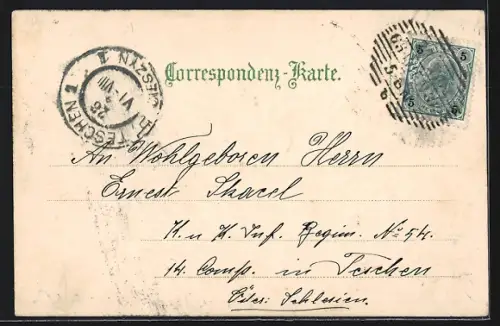 Correspondenz-Karte.
TESCHEN 1
CIESZYN 1
26
VI-VII
5 5
5 5
An Wohlgeboren Herrn
Ernest Skacel
K. u K. Inf. Regim. No 54.
14. Comp. in Teschen
Öster: Schlesien.